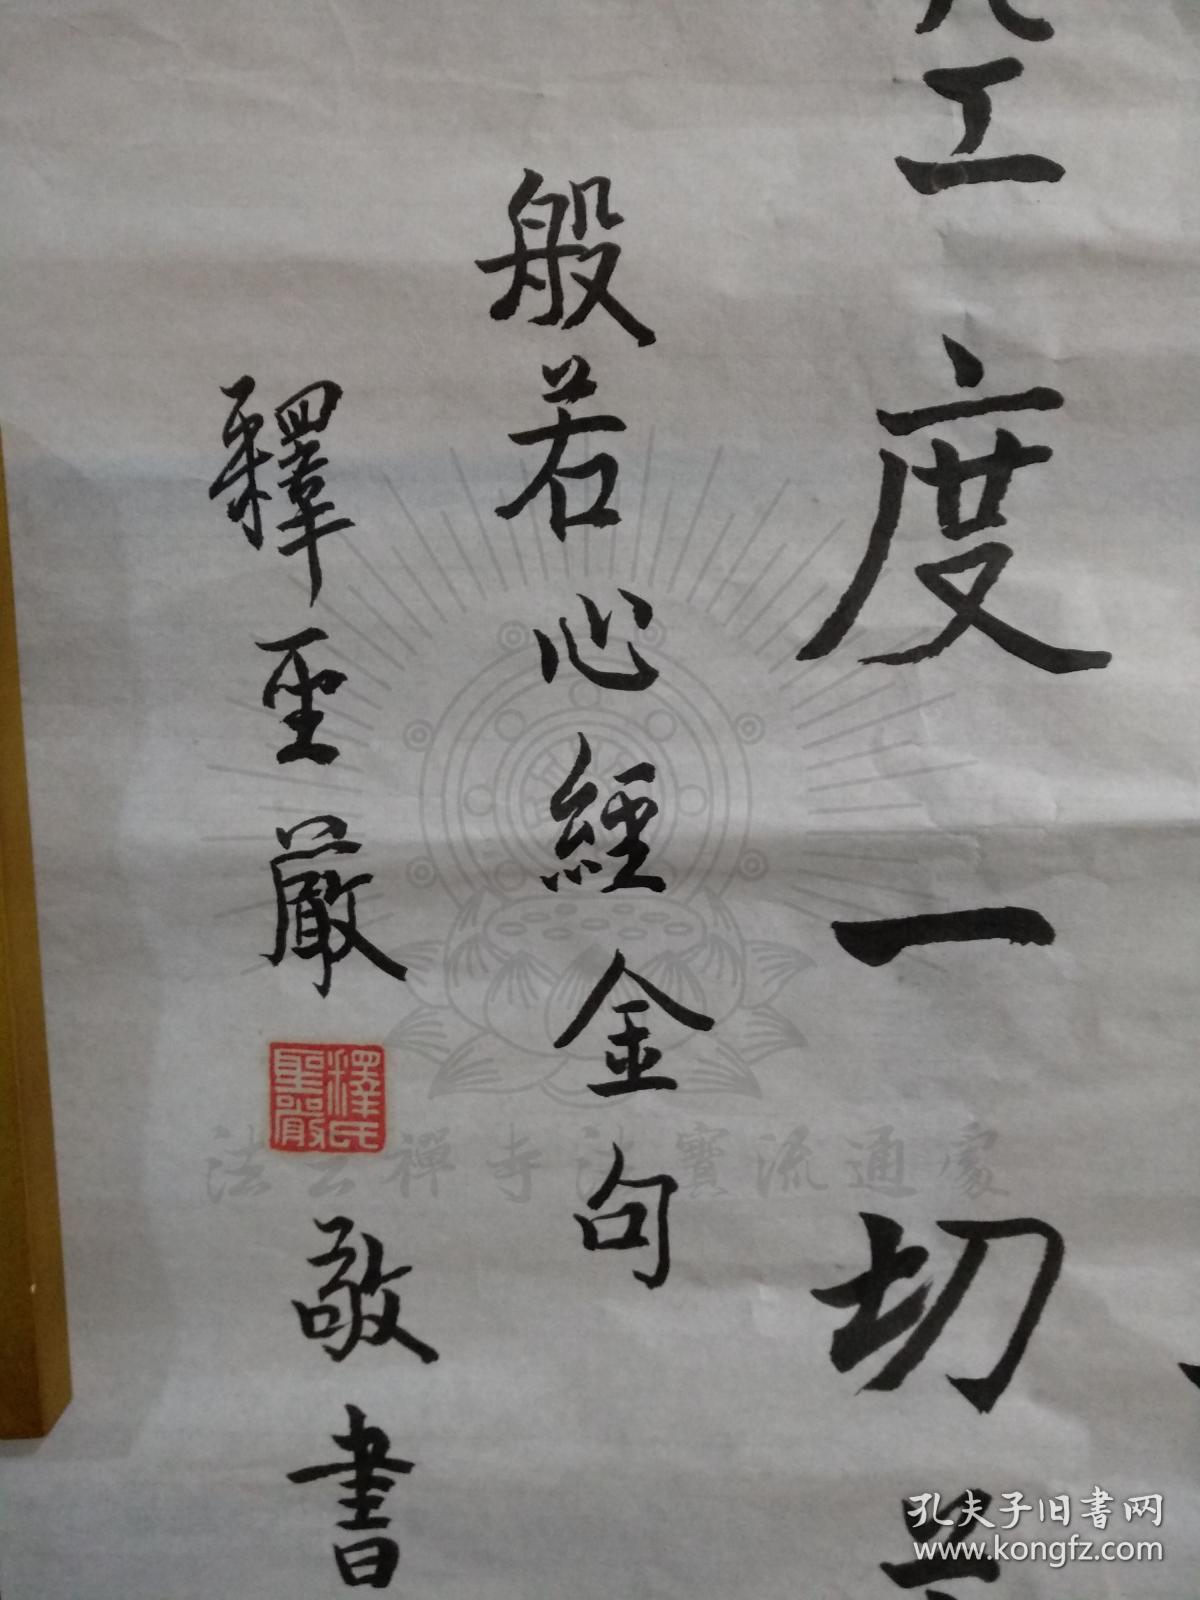 空度一切苦
般若心經金句
釋聖嚴
敬書
釋氏
聖嚴
法雲禪寺法寶流通處
孔夫子旧书网
www.kongfz.com